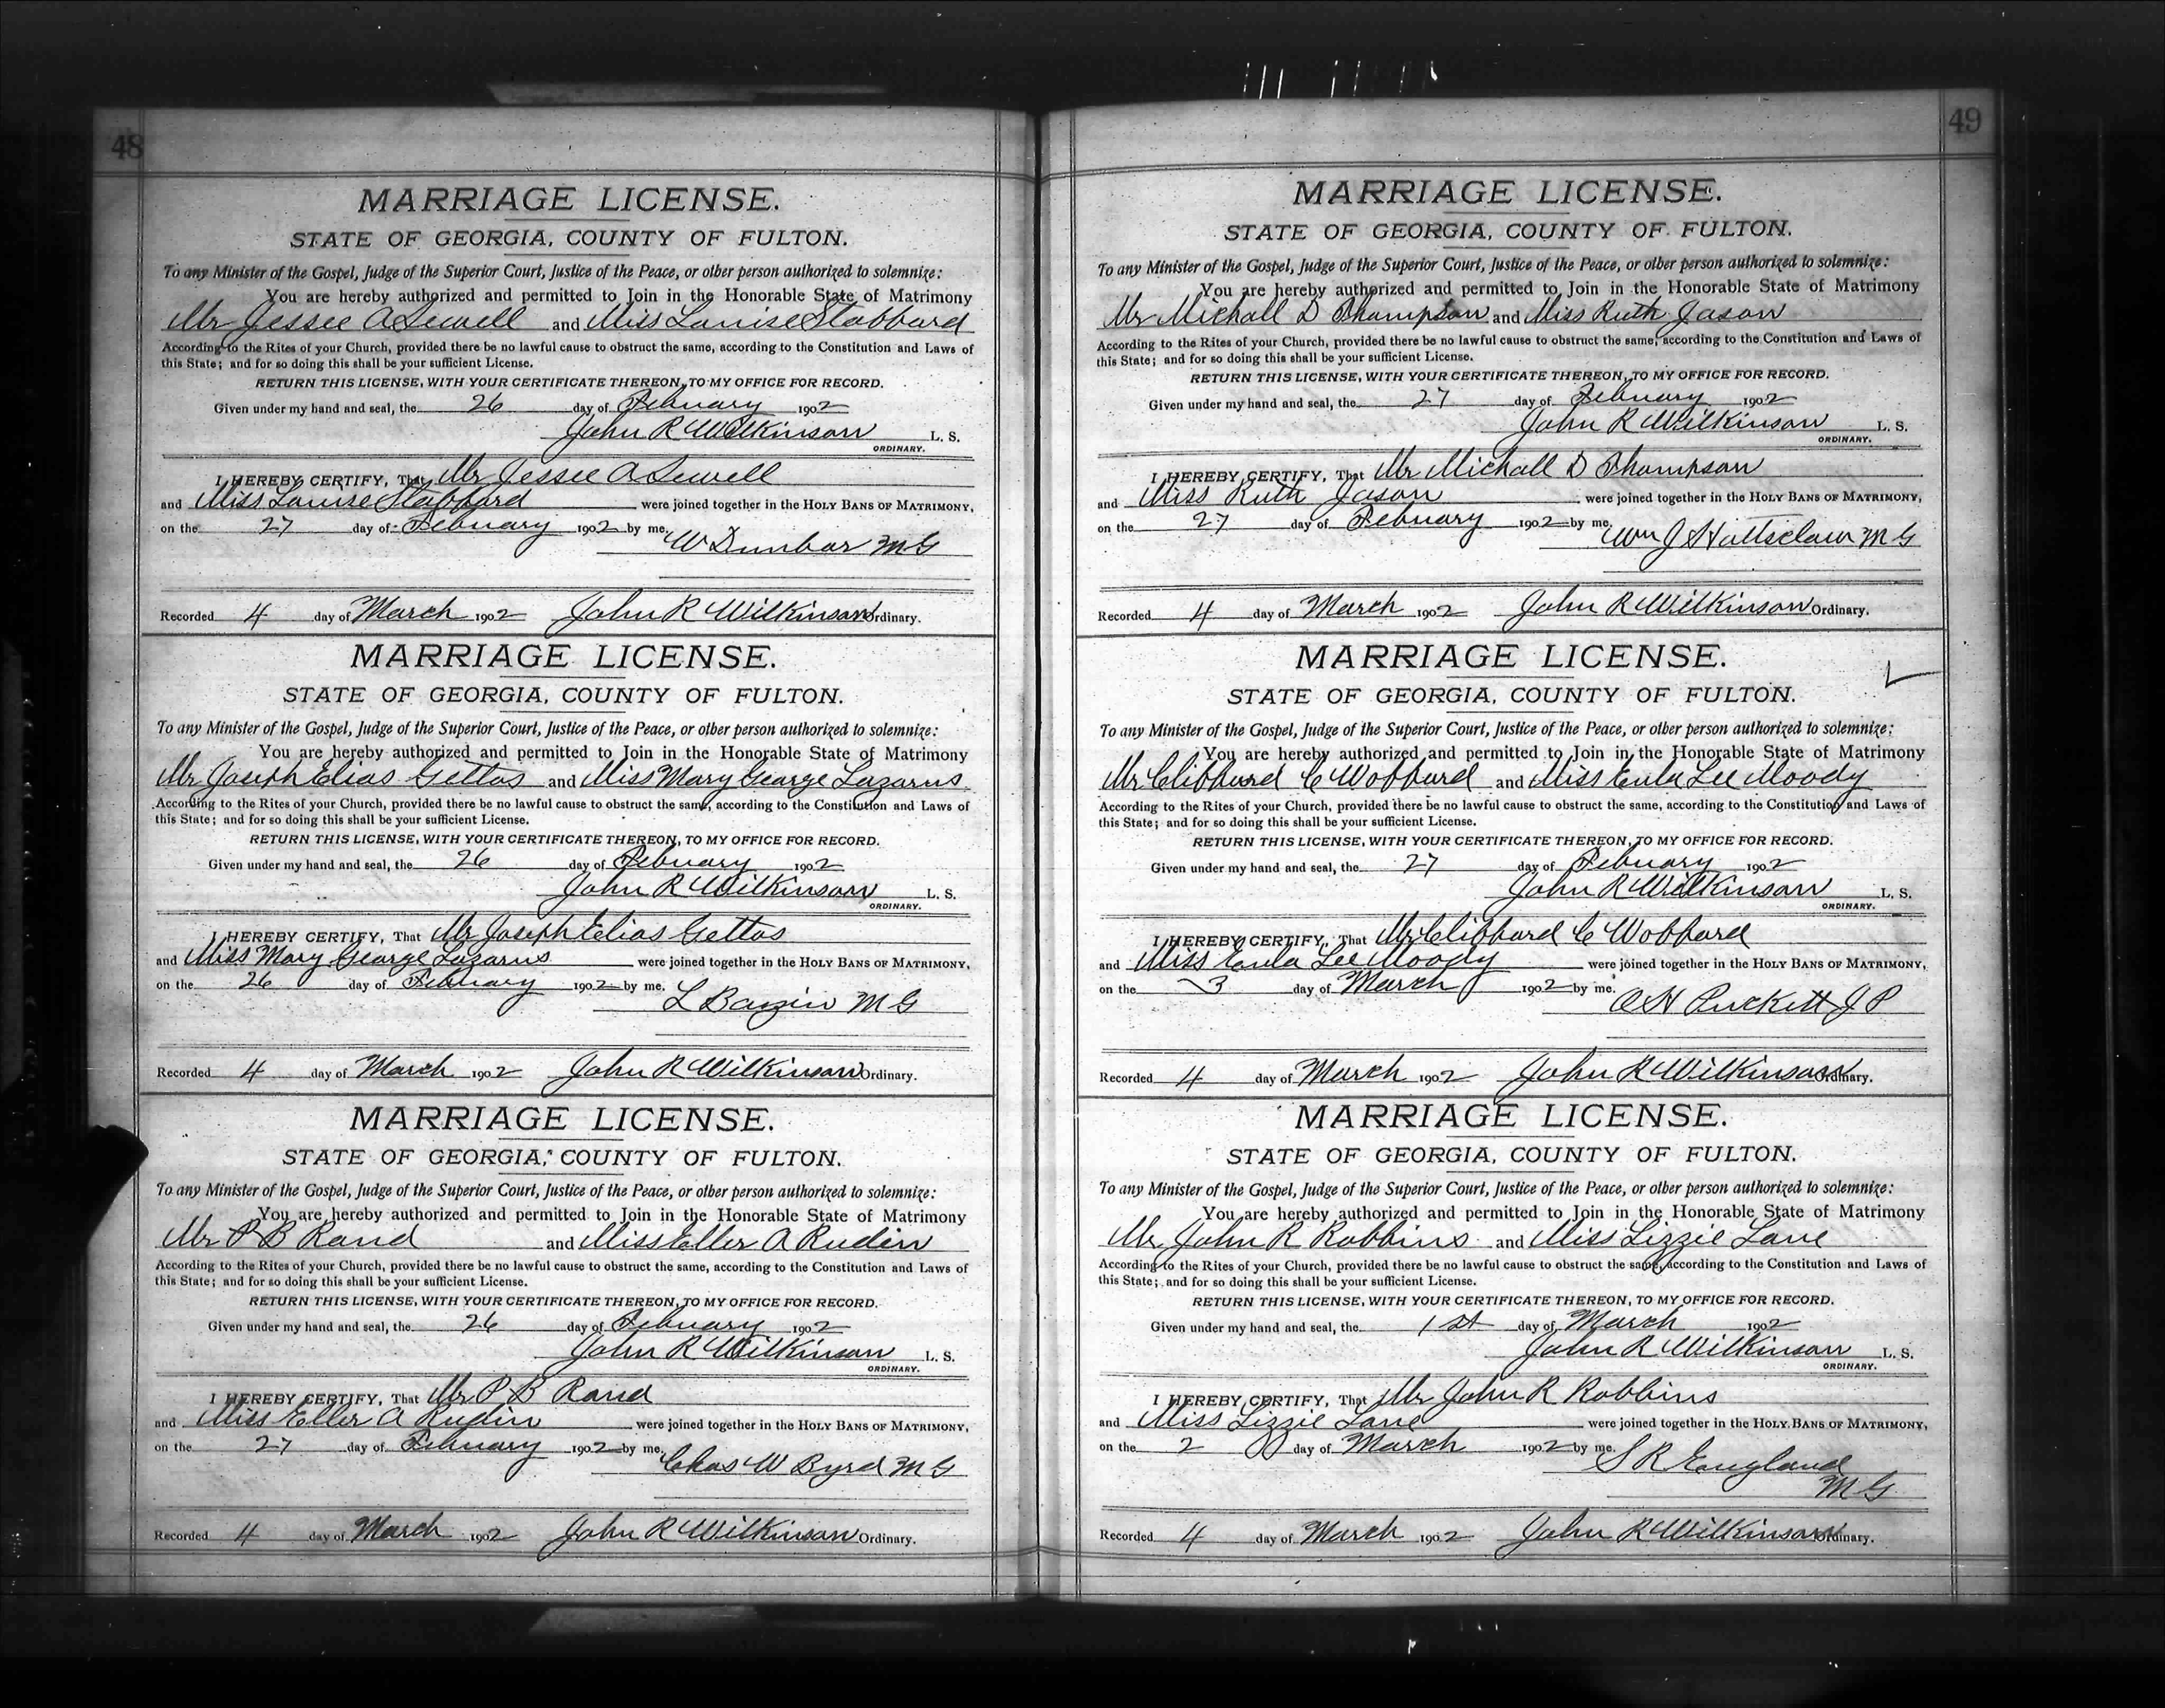 48
MARRIAGE LICENSE.
STATE OF GEORGIA, COUNTY OF FULTON.
To any Minister of the Gospel, Judge of the Superior Court, Justice of the Peace, or other person authorized to solemnize:
You are hereby authorized and permitted to Join in the Honorable State of Matrimony
Mr Jessee A Sewell and Miss Louise Stobbard
According to the Rites of your Church, provided there be no lawful cause to obstruct the same, according to the Constitution and Laws of
this State; and for so doing this shall be your sufficient License.
RETURN THIS LICENSE, WITH YOUR CERTIFICATE THEREON, TO MY OFFICE FOR RECORD.
Given under my hand and seal, the 26 day of February 1902
John R Wilkinson L. S.
ORDINARY.
I HEREBY CERTIFY, That Mr Jessee A Sewell
and Miss Louise Stobbard were joined together in the HOLY BANS OF MATRIMONY,
on the 27 day of February 1902 by me.
W Dunbar M G
Recorded 4 day of March 1902 John R Wilkinson Ordinary.
MARRIAGE LICENSE.
STATE OF GEORGIA, COUNTY OF FULTON.
To any Minister of the Gospel, Judge of the Superior Court, Justice of the Peace, or other person authorized to solemnize:
You are hereby authorized and permitted to Join in the Honorable State of Matrimony
Mr Joseph Elias Gettos and Miss Mary George Lazarus
According to the Rites of your Church, provided there be no lawful cause to obstruct the same, according to the Constitution and Laws of
this State; and for so doing this shall be your sufficient License.
RETURN THIS LICENSE, WITH YOUR CERTIFICATE THEREON, TO MY OFFICE FOR RECORD.
Given under my hand and seal, the 26 day of February 1902
John R Wilkinson L. S.
ORDINARY.
I HEREBY CERTIFY, That Mr Joseph Elias Gettos
and Miss Mary George Lazarus were joined together in the HOLY BANS OF MATRIMONY,
on the 26 day of February 1902 by me.
L Bazin M G
Recorded 4 day of March 1902 John R Wilkinson Ordinary.
MARRIAGE LICENSE.
STATE OF GEORGIA, COUNTY OF FULTON.
To any Minister of the Gospel, Judge of the Superior Court, Justice of the Peace, or other person authorized to solemnize:
You are hereby authorized and permitted to Join in the Honorable State of Matrimony
Mr P B Rand and Miss Eller A Rudin
According to the Rites of your Church, provided there be no lawful cause to obstruct the same, according to the Constitution and Laws of
this State; and for so doing this shall be your sufficient License.
RETURN THIS LICENSE, WITH YOUR CERTIFICATE THEREON, TO MY OFFICE FOR RECORD.
Given under my hand and seal, the 26 day of February 1902
John R Wilkinson L. S.
ORDINARY.
I HEREBY CERTIFY, That Mr P B Rand
and Miss Eller A Rudin were joined together in the HOLY BANS OF MATRIMONY,
on the 27 day of February 1902 by me.
Chas W Byrd M G
Recorded 4 day of March 1902 John R Wilkinson Ordinary.
49
MARRIAGE LICENSE.
STATE OF GEORGIA, COUNTY OF FULTON.
To any Minister of the Gospel, Judge of the Superior Court, Justice of the Peace, or other person authorized to solemnize:
You are hereby authorized and permitted to Join in the Honorable State of Matrimony
Mr Michall D Thompson and Miss Ruth Jason
According to the Rites of your Church, provided there be no lawful cause to obstruct the same, according to the Constitution and Laws of
this State; and for so doing this shall be your sufficient License.
RETURN THIS LICENSE, WITH YOUR CERTIFICATE THEREON, TO MY OFFICE FOR RECORD.
Given under my hand and seal, the 27 day of February 1902
John R Wilkinson L. S.
ORDINARY.
I HEREBY CERTIFY, That Mr Michall D Thompson
and Miss Ruth Jason were joined together in the HOLY BANS OF MATRIMONY,
on the 27 day of February 1902 by me.
Wm J Holtsclaw M G
Recorded 4 day of March 1902 John R Wilkinson Ordinary.
MARRIAGE LICENSE.
STATE OF GEORGIA, COUNTY OF FULTON.
To any Minister of the Gospel, Judge of the Superior Court, Justice of the Peace, or other person authorized to solemnize:
You are hereby authorized and permitted to Join in the Honorable State of Matrimony
Mr Clibburd C Wobburd and Miss Eula Lee Moody
According to the Rites of your Church, provided there be no lawful cause to obstruct the same, according to the Constitution and Laws of
this State; and for so doing this shall be your sufficient License.
RETURN THIS LICENSE, WITH YOUR CERTIFICATE THEREON, TO MY OFFICE FOR RECORD.
Given under my hand and seal, the 27 day of February 1902
John R Wilkinson L. S.
ORDINARY.
I HEREBY CERTIFY, That Mr Clibbard C Wobbard
and Miss Eula Lee Moody were joined together in the HOLY BANS OF MATRIMONY,
on the 3 day of March 1902 by me.
O H Puckett J P
Recorded 4 day of March 1902 John R Wilkinson Ordinary.
MARRIAGE LICENSE.
STATE OF GEORGIA, COUNTY OF FULTON.
To any Minister of the Gospel, Judge of the Superior Court, Justice of the Peace, or other person authorized to solemnize:
You are hereby authorized and permitted to Join in the Honorable State of Matrimony
Mr John R Robbins and Miss Lizzie Lane
According to the Rites of your Church, provided there be no lawful cause to obstruct the same, according to the Constitution and Laws of
this State; and for so doing this shall be your sufficient License.
RETURN THIS LICENSE, WITH YOUR CERTIFICATE THEREON, TO MY OFFICE FOR RECORD.
Given under my hand and seal, the 1st day of March 1902
John R Wilkinson L. S.
ORDINARY.
I HEREBY CERTIFY, That Mr John R Robbins
and Miss Lizzie Lane were joined together in the HOLY BANS OF MATRIMONY,
on the 2 day of March 1902 by me.
S R England
M G
Recorded 4 day of March 1902 John R Wilkinson Ordinary.